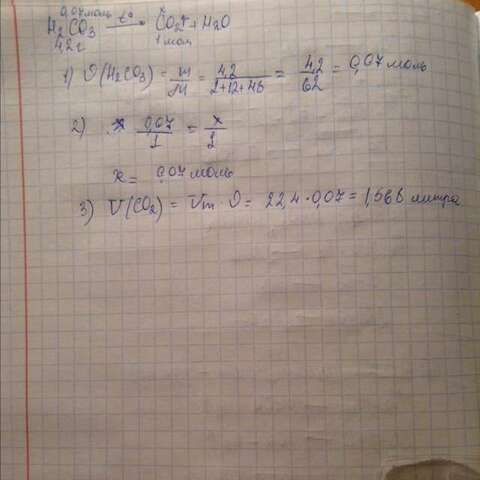 0,07 моль x
H₂CO₃ t° → CO₂↑ + H₂O
4,2 г 1 мол
1) ϑ(H₂CO₃) = m/M = 4,2/2+12+48 = 4,2/62 = 0,07 моль
2) 0,07/1 = x/1
x = 0,07 моль
3) V(CO₂) = Vm · ϑ = 22,4 · 0,07 = 1,568 литра